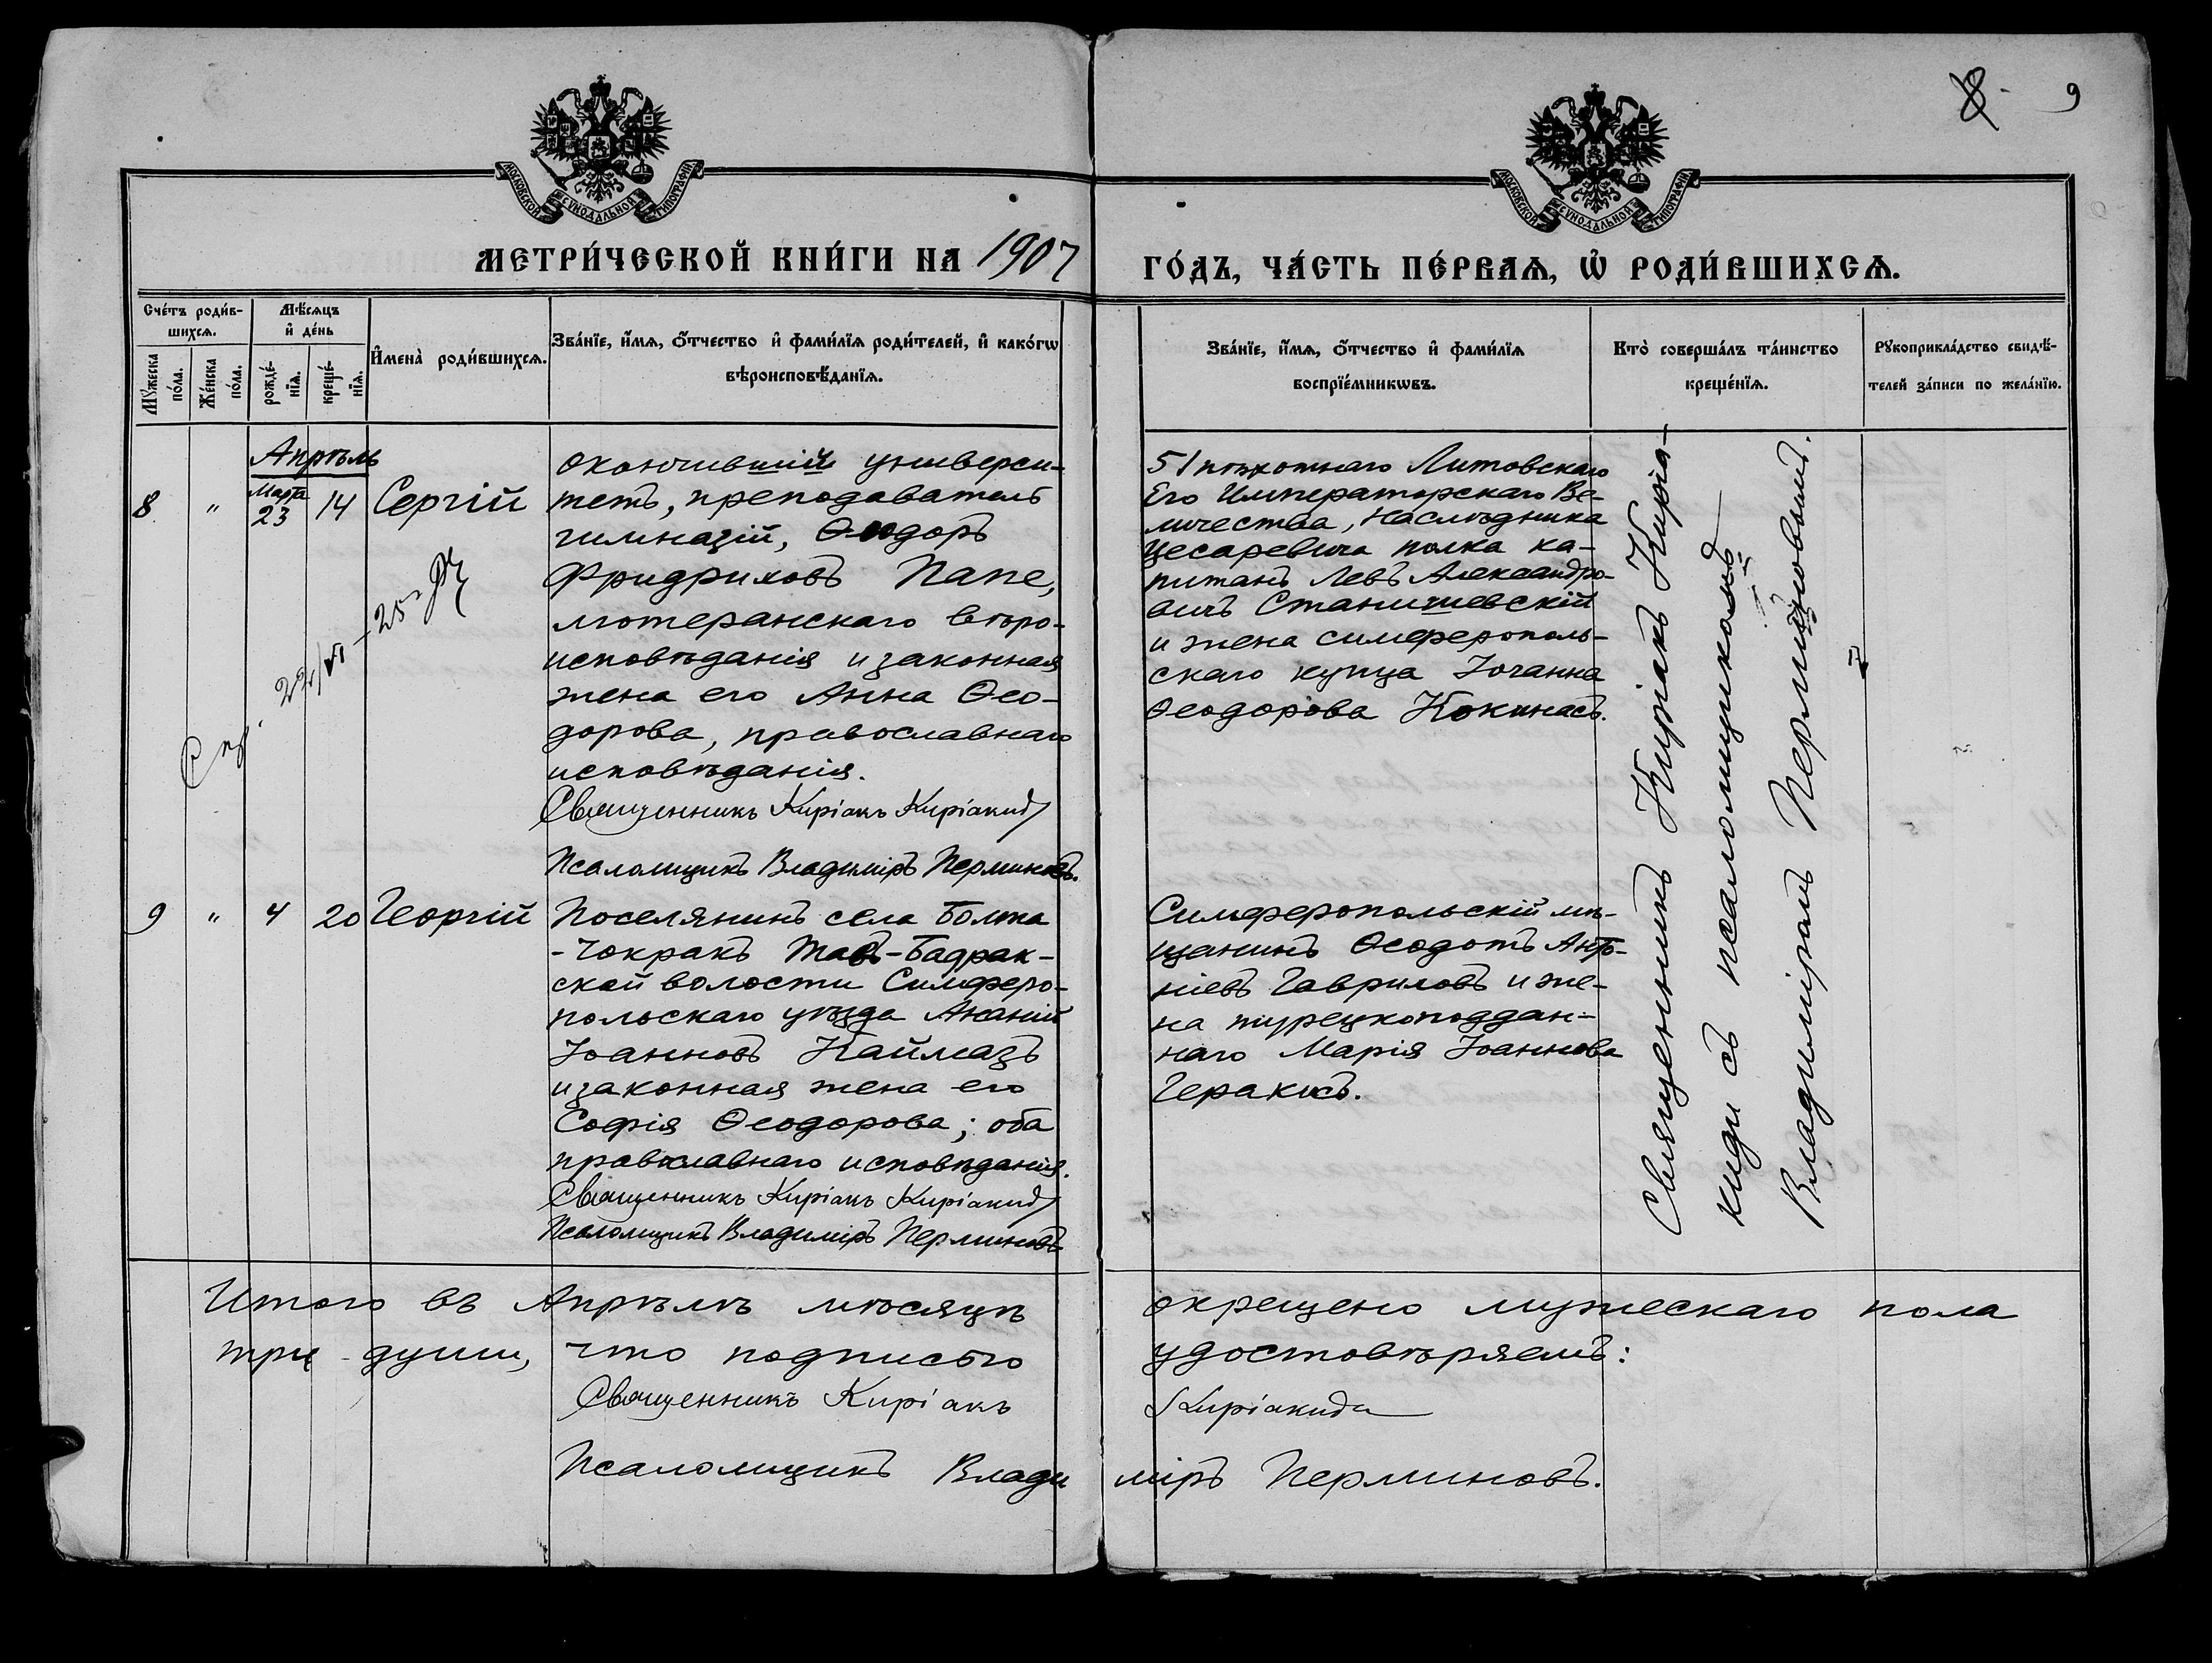 8 9
МОСКОВСКОЙ СѴНОДАЛЬНОЙ ТИПОГРАФІИ
МОСКОВСКОЙ СѴНОДАЛЬНОЙ ТИПОГРАФІИ
МЕТРИ́ЧЕСКОЙ КНИ́ГИ НА 1907
ГО́ДЪ, ЧА́СТЬ ПЕ́РВАѦ, Ѡ҆ РОДИ́ВШИХСѦ.
Сче́тъ роди́в-
шихсѧ.
Мꙋ́жеска
по́ла.
Же́нска
по́ла.
Мѣ́сѧцъ
и҆ де́нь
рожде́-
нїѧ.
креще́-
нїѧ.
И҆мена̀ роди́вшихсѧ.
Зва́нїе, и҆́мѧ, ѻ҆́тчество и҆ фами́лїѧ роди́телей, и҆ како́гѡ
вѣроисповѣ́данїѧ.
Зва́нїе, и҆́мѧ, ѻ҆́тчество и҆ фами́лїѧ
воспрїе́мникѡвъ.
Кто̀ соверша́лъ та́инство
креще́нїѧ.
Рꙋкоприкла́дство свидѣ́-
телей за́писи по жела́нїю.
Апрѣль
8 " Марта 23 14 Сергій
окончившій универси-
тетъ, преподаватель
гимназій, Ѳеодоръ
Фридриховъ Папе,
лютеранскаго вѣро-
исповѣданія и законная
жена его Анна Ѳео-
дорова, православнаго
исповѣданія.
Священникъ Киріакъ Киріакиди
Псаломщикъ Владиміръ Перминовъ.
51 пѣхотнаго Литовскаго
Его Императорскаго Ве-
личества, Наслѣдника
Цесаревича полка ка-
питанъ Левъ Александро-
вичъ Станишевскій
и жена симферополь-
скаго купца Іоганна
Ѳеодорова Кокинасъ.
Священникъ Киріакъ Киріа-
киди съ псаломщикомъ
Владиміромъ Перминовымъ.
9 " 4 20 Георгій
Поселянинъ села Болта
-Чокракъ Тавъ-Бадрак-
ской волости Симферо-
польскаго уѣзда Ананій
Іоанновъ Каймазъ
и законная жена его
Софія Ѳеодорова; оба
православнаго исповѣданія.
Священникъ Киріакъ Киріакиди
Псаломщикъ Владиміръ Перминовъ
Симферопольскій мѣ-
щанинъ Ѳеодотъ Анто-
ніевъ Гавриловъ и же-
на турецкоподдан-
наго Марія Іоаннова
Геракисъ.
Итого въ Апрѣлѣ мѣсяцѣ окрещено мужескаго пола
три души, что подписью удостовѣряемъ:
Священникъ Киріакъ Киріакиди
Псаломщикъ Владиміръ Перминовъ.